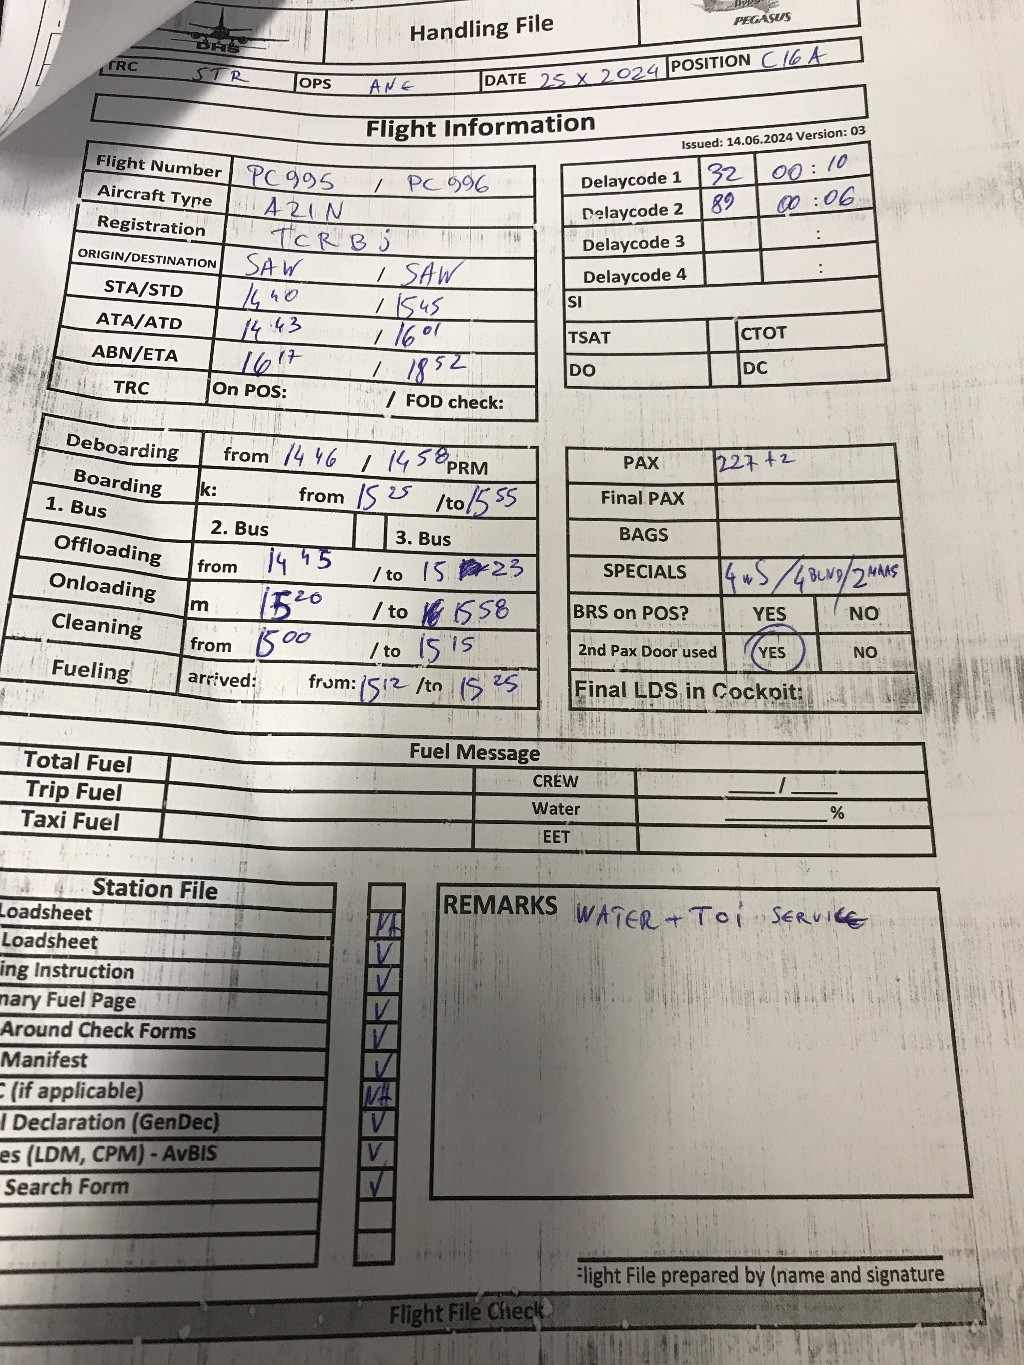 Handling File
DHS
PEGASUS
TRC STR OPS ANE DATE 25 X 2024 POSITION C16A
Flight Information
Issued: 14.06.2024 Version: 03
Flight Number PC995 / PC996
Aircraft Type A21N
Registration TCRBJ
ORIGIN/DESTINATION SAW / SAW
STA/STD 1440 / 1545
ATA/ATD 1443 / 1601
ABN/ETA 1617 / 1852
TRC On POS: / FOD check:
Delaycode 1 32 00:10
Delaycode 2 89 00:06
Delaycode 3 :
Delaycode 4 :
SI
TSAT CTOT
DO DC
Deboarding from 1446 / 1458 PRM
Boarding k: from 1525 /to 1555
1. Bus 2. Bus 3. Bus
Offloading from 1445 / to 15 23
Onloading m 1520 / to 1558
Cleaning from 1500 / to 1515
Fueling arrived: from: 1512 /to 1525
PAX 227+2
Final PAX
BAGS
SPECIALS 4 WS / 4 BLND / 2 MAAS
BRS on POS? YES NO
2nd Pax Door used YES NO
Final LDS in Cockpit:
Fuel Message
Total Fuel CREW ____/____
Trip Fuel Water ________%
Taxi Fuel EET
Station File
Loadsheet NA
Loadsheet V
ing Instruction V
nary Fuel Page V
Around Check Forms V
Manifest V
(if applicable) NA
l Declaration (GenDec) V
es (LDM, CPM) - AvBIS V
Search Form V
REMARKS WATER + TOI SERVICE
Flight File prepared by (name and signature
Flight File Check